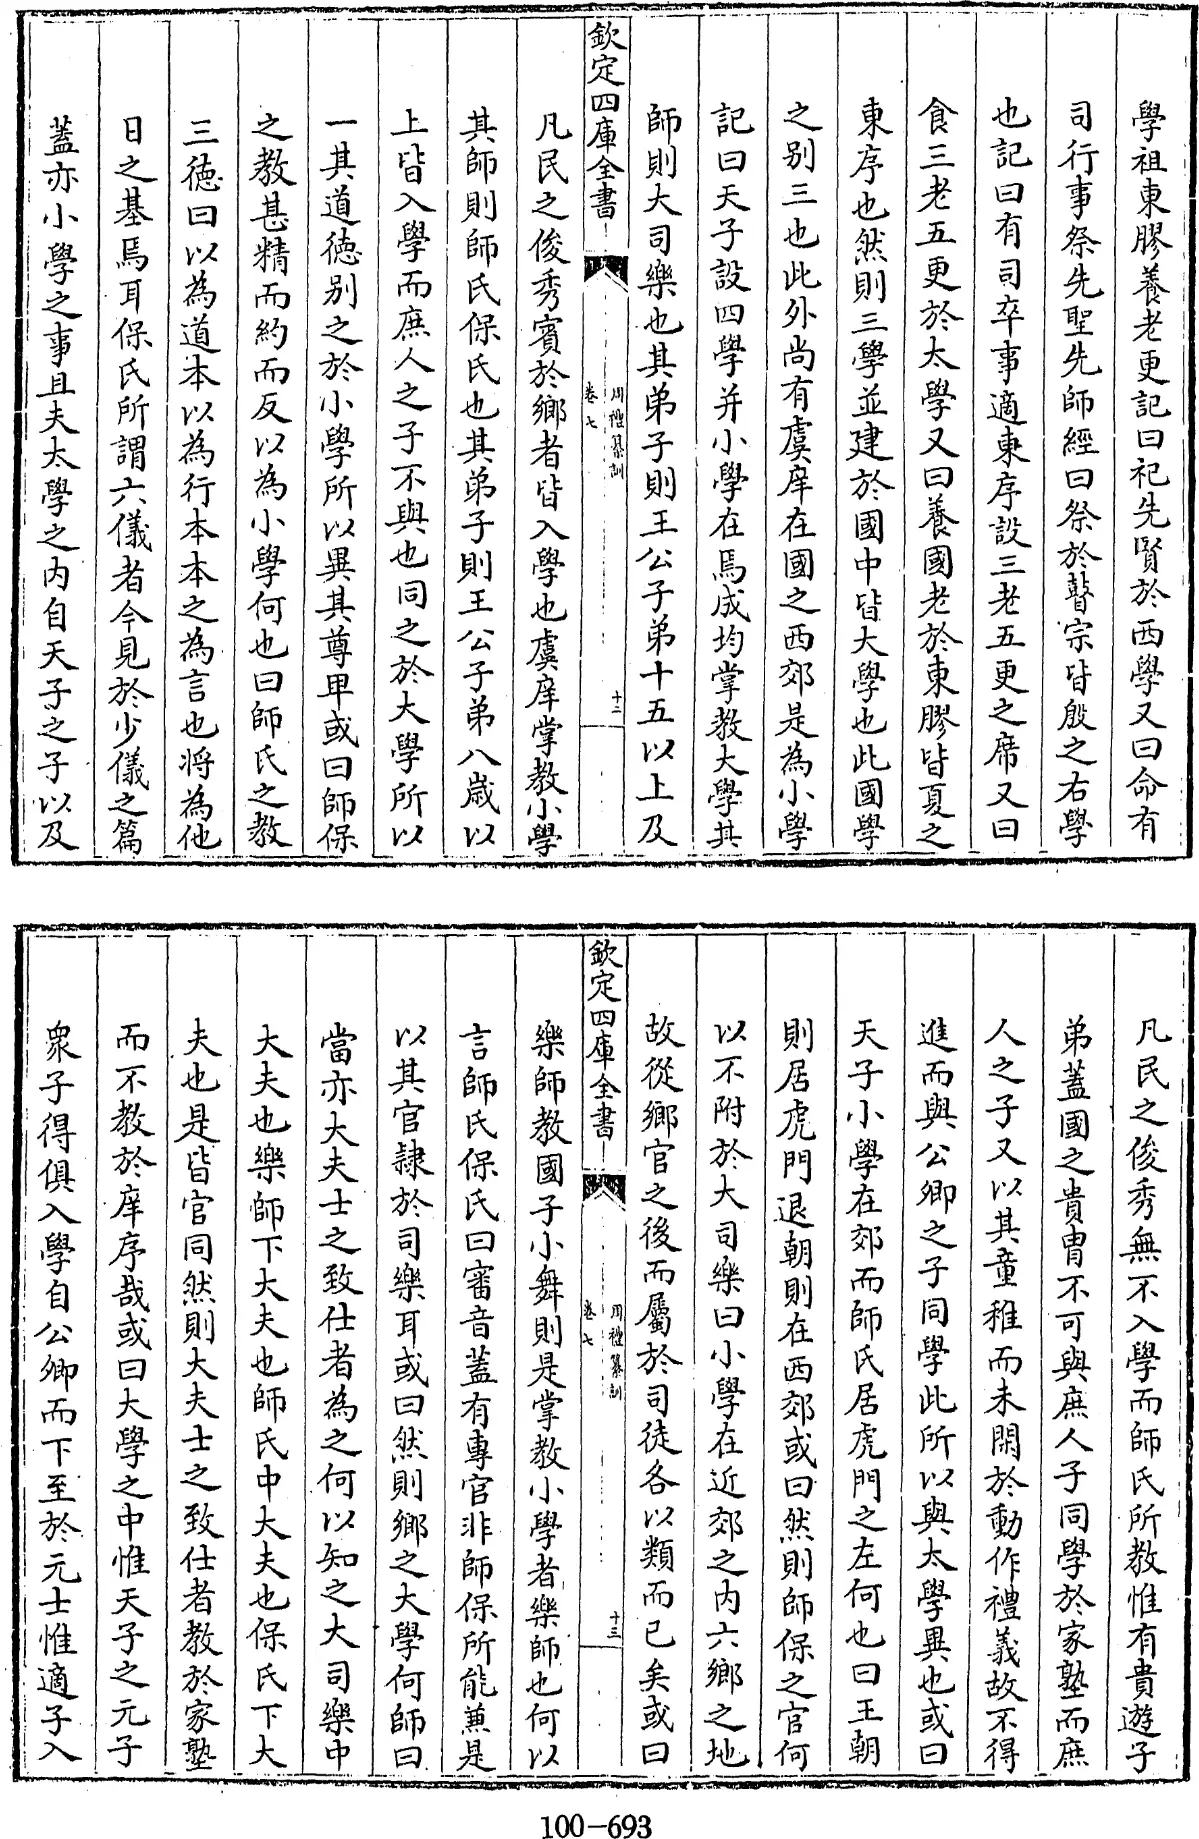 學祖東膠養老更記曰祀先賢於西學又曰命有
司行事祭先聖先師經曰祭於瞽宗皆殷之右學
也記曰有司卒事適東序設三老五更之席又曰
食三老五更於太學又曰養國老於東膠皆夏之
東序也然則三學並建於國中皆大學也此國學
之别三也此外尚有虞庠在國之西郊是為小學
記曰天子設四學并小學在焉成均掌教大學其
師則大司樂也其弟子則王公子弟十五以上及
欽定四庫全書
周禮纂訓
卷七
十二
凡民之俊秀賓於鄉者皆入學也虞庠掌教小學
其師則師氏保氏也其弟子則王公子弟八歲以
上皆入學而庶人之子不與也同之於大學所以
一其道德别之於小學所以異其尊卑或曰師保
之教甚精而約而反以為小學何也曰師氏之教
三德曰以為道本以為行本本之為言也將為他
日之基焉耳保氏所謂六儀者今見於少儀之篇
蓋亦小學之事且夫太學之内自天子之子以及
凡民之俊秀無不入學而師氏所教惟有貴遊子
弟蓋國之貴胄不可與庶人子同學於家塾而庶
人之子又以其童稚而未閑於動作禮義故不得
進而與公卿之子同學此所以與太學異也或曰
天子小學在郊而師氏居虎門之左何也曰王朝
則居虎門退朝則在西郊或曰然則師保之官何
以不附於大司樂曰小學在近郊之内六鄉之地
故從鄉官之後而屬於司徒各以類而已矣或曰
欽定四庫全書
周禮纂訓
卷七
十三
樂師教國子小舞則是掌教小學者樂師也何以
言師氏保氏曰審音蓋有專官非師保所能兼是
以其官隸於司樂耳或曰然則鄉之大學何師曰
當亦大夫士之致仕者為之何以知之大司樂中
大夫也樂師下大夫也師氏中大夫也保氏下大
夫也是皆官同然則大夫士之致仕者教於家塾
而不教於庠序哉或曰大學之中惟天子之元子
衆子得俱入學自公卿而下至於元士惟適子入
100-693